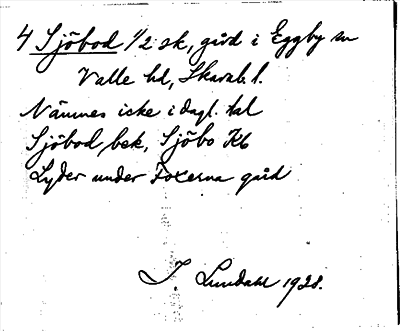 4 Sjöbod 1/2 sk, gård i Eggby sn
Valle hd, Skarab. l.
Nämnes icke i dagl. tal
Sjöbod bek, Sjöbo Kb
Lyder under Foxerna gård
J. Lundahl 1928.